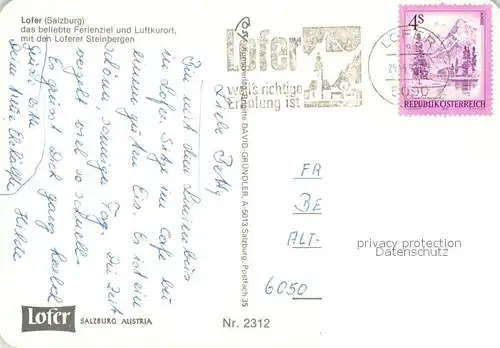 Lofer (Salzburg)
das beliebte Ferienziel und Luftkurort,
mit den Loferer Steinbergen
Liebe Betty
Bin mit dem Linienbus
in Lofer. Sitze im Cafe bei
einem guten Eis. Es ist ein
schöner, sonniger Tag. Die Zeit
vergeht viel so schnell.
Es grüsst Dich ganz herzlich
Deine
Hilde
Lofer
weil's richtige
Erholung ist
LOFER
5090
4S
REPUBLIK ÖSTERREICH
Kunstverlag Brigitte DAVID-GRÜNDLER, A-5013 Salzburg, Postfach 35
FR
BE
ALT-
6050
privacy protection
Datenschutz
Lofer
SALZBURG AUSTRIA
Nr. 2312